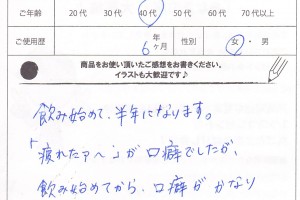 ご年齢 20代 30代 40代 50代 60代 70代以上
ご使用歴 年 6ヶ月 性別 女・男
商品をお使い頂いたご感想をお書きください。
イラストも大歓迎です♪
飲み始めて、半年になります。
「疲れたァ～」が口癖でしたが、
飲み始めてから、口癖が かなり